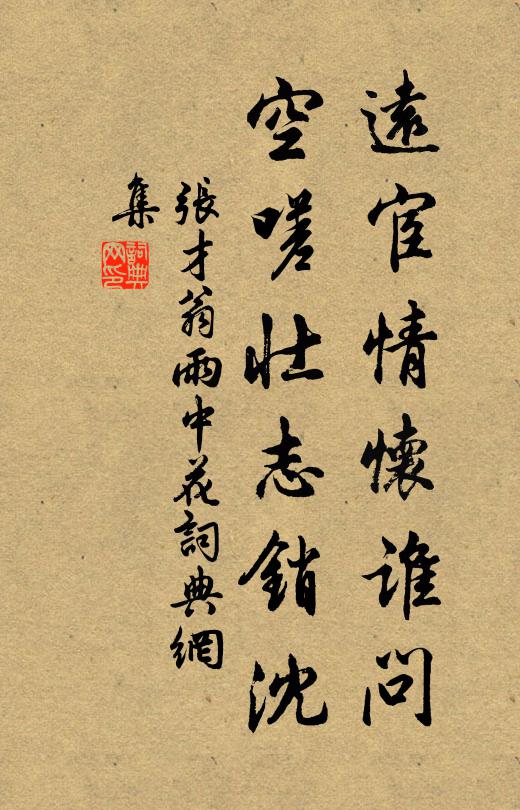 遠宦情懷誰問
空嗟壯志銷沈
張才翁雨中花詞典網
集
詞典
网印